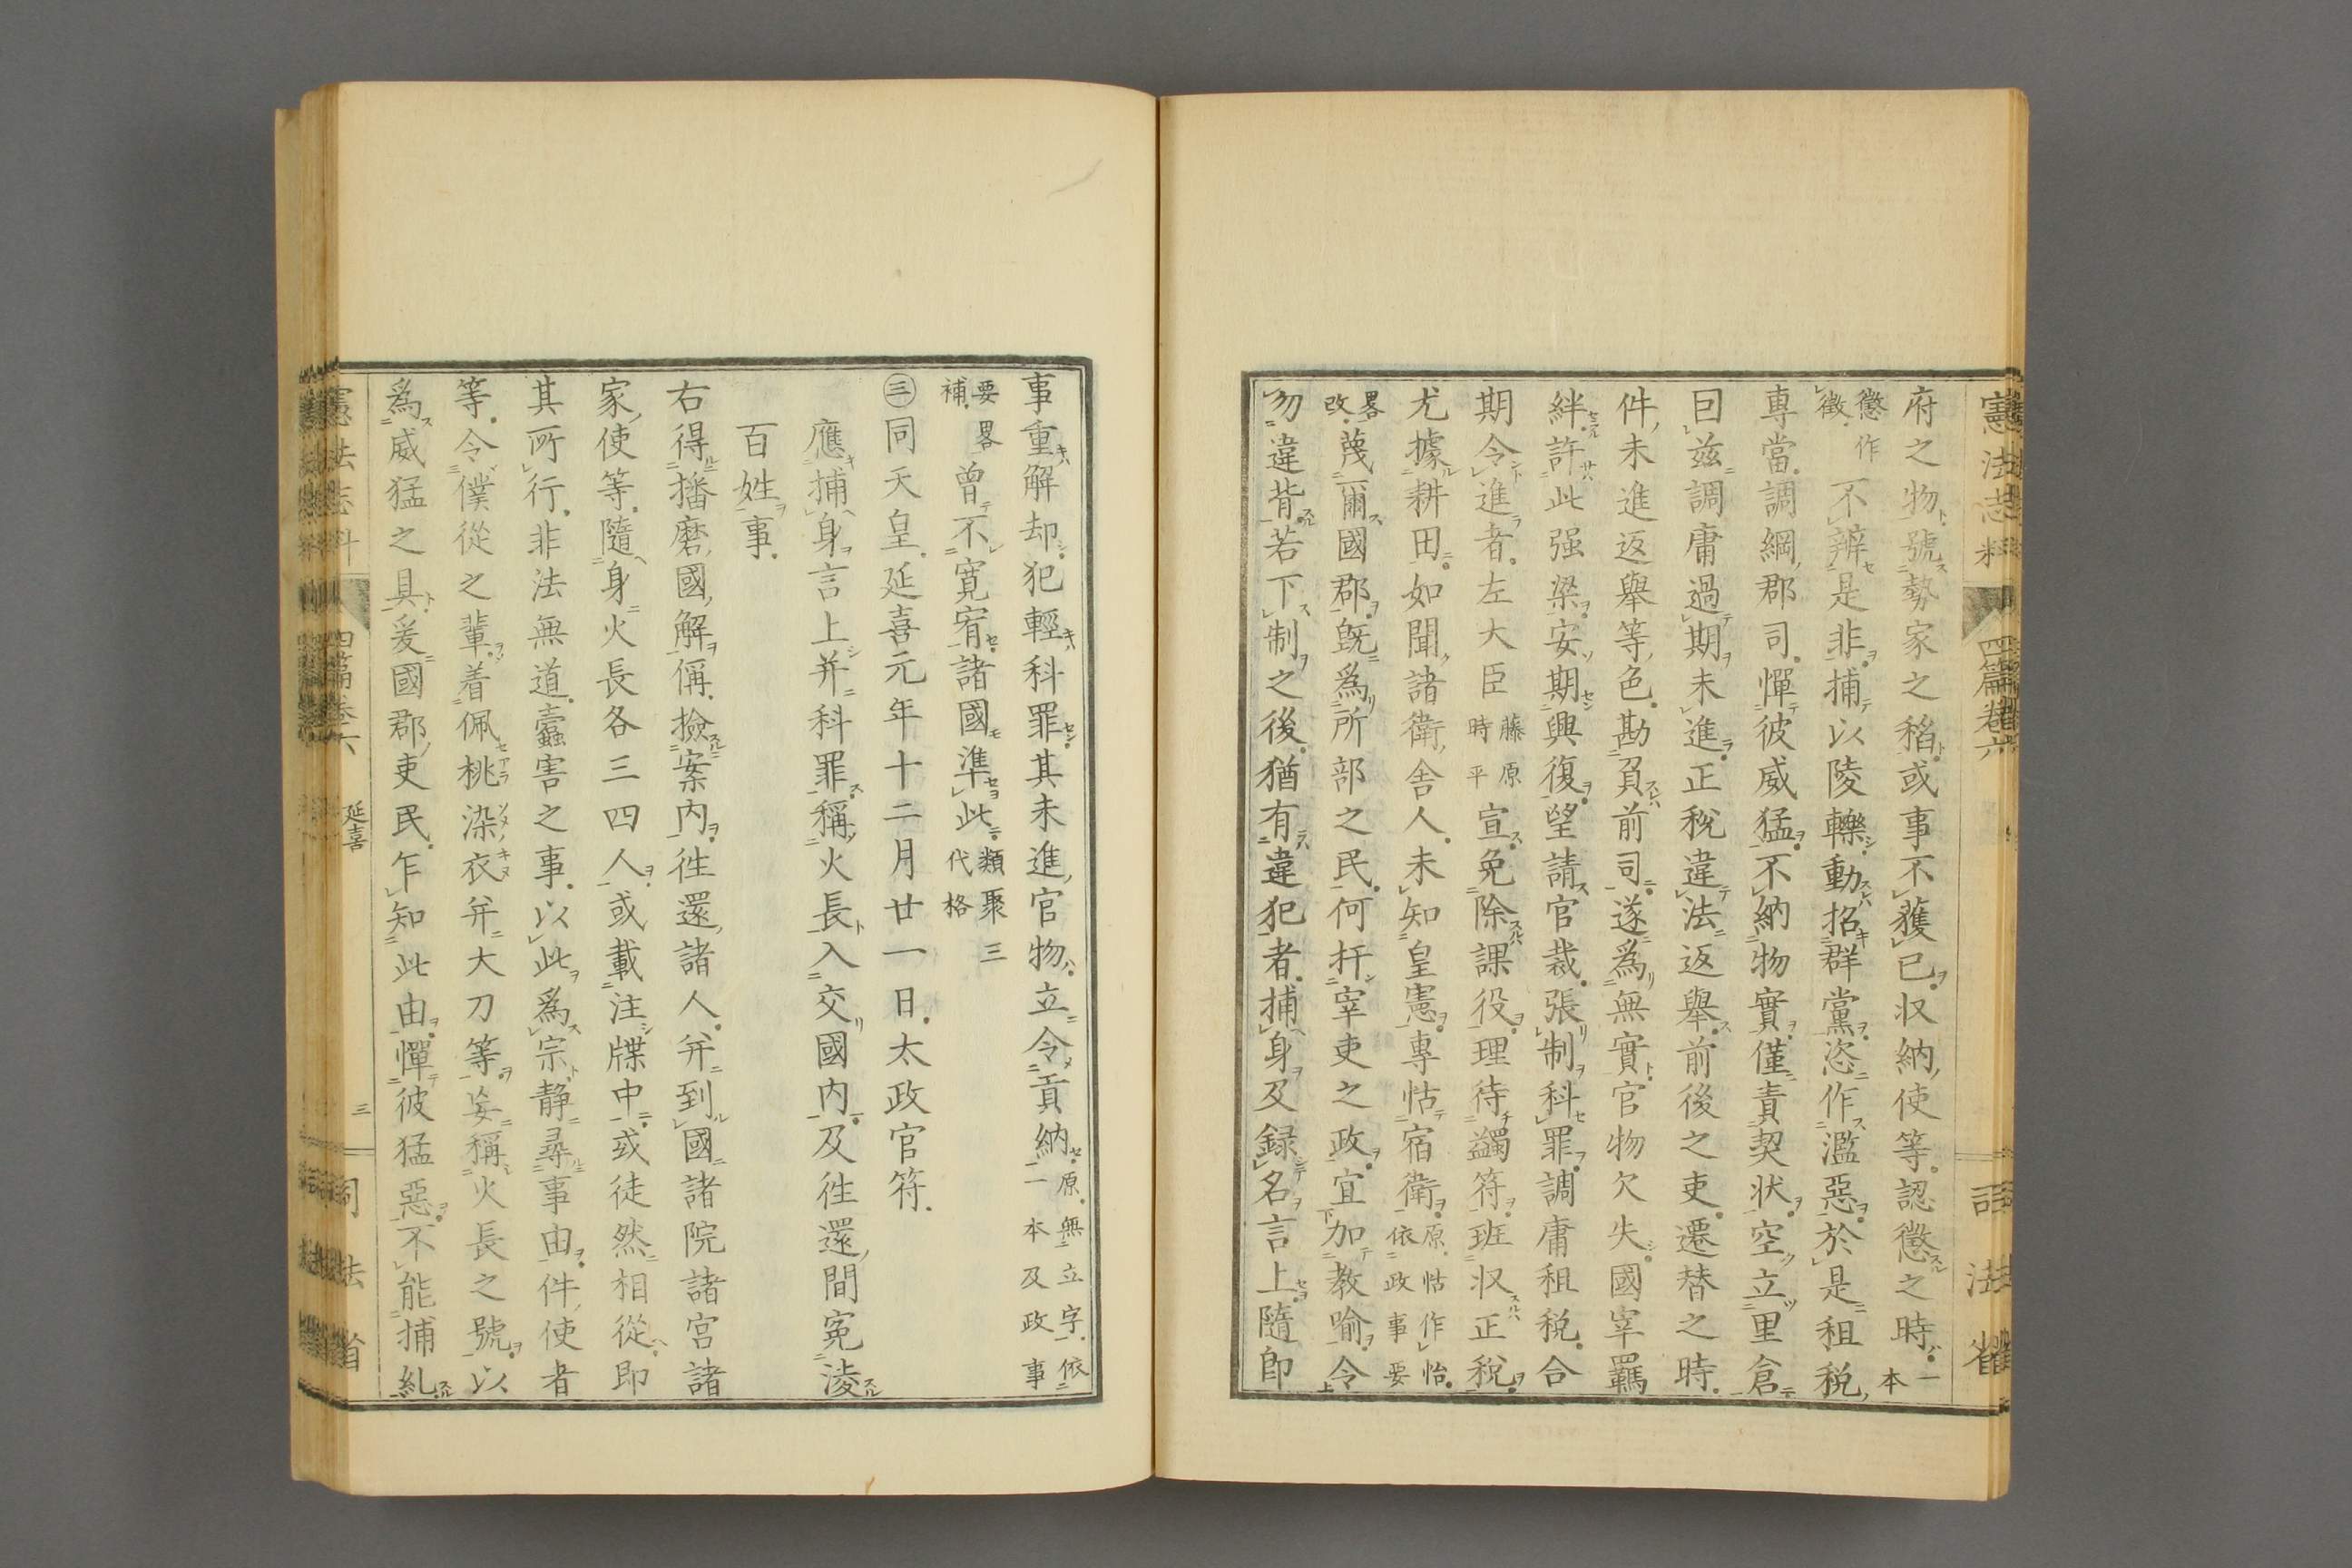 憲法志料 四篇卷六 司法省
府之物號勢家之稲或事不獲已収納使等認懲之時一本
懲作徴不辨是非捕以陵轢動招群黨恣作濫惡於是租税
專當調綱郡司憚彼威猛不納物實僅責契状空立里倉
囙兹調庸過期未進正税違法返舉前後之吏遷替之時
件未進返舉等色勘負前司遂爲無實官物欠失國宰羈
絆許此强梁安期興復望請官裁張制科罪調庸租税合
期令進者左大臣藤原時平宣免除課役理待蠲符班収正税
尤據耕田如聞諸衛舍人未知皇憲專怙宿衛原怙作怡依政事要
畧改蔑爾國郡既爲所部之民何扞宰吏之政宜加教喻令
勿違背若下制之後猶有違犯者捕身及録名言上隨即
事重解却犯輕科罪其未進官物立令貢納原無立字依一本及政事
要畧補曾不寛宥諸國準此類聚三代格
㊂同天皇延喜元年十二月廿一日太政官符
應捕身言上并科罪稱火長入交國内及徃還間寃淩
百姓事
右得播磨國解偁撿案内徃還諸人并到國諸院諸宮諸
家使等隨身火長各三四人或載注牒中或徒然相從即
其所行非法無道蠹害之事以此爲宗静尋事由件使者
等令僕從之輩着佩桃染衣并大刀等妄稱火長之號以
爲威猛之具爰國郡吏民乍知此由憚彼猛惡不能捕糺
憲法志料 四篇卷六 延喜 三 司法省